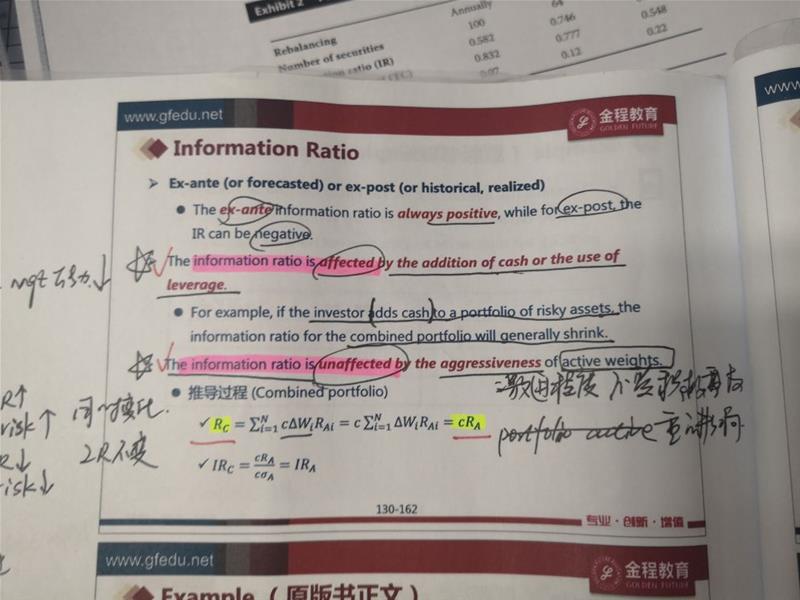 Exhibit 2
Annually
64
Rebalancing 100 0.746 0.548
Number of securities 0.582 0.777 0.22
ratio (IR) 0.832 0.12
0.07
www.gfedu.net
金程教育
GOLDEN FUTURE
Information Ratio
Ex-ante (or forecasted) or ex-post (or historical, realized)
The ex-ante information ratio is always positive, while for ex-post, the
IR can be negative.
The information ratio is affected by the addition of cash or the use of
leverage.
For example, if the investor adds cash to a portfolio of risky assets, the
information ratio for the combined portfolio will generally shrink.
The information ratio is unaffected by the aggressiveness of active weights.
推导过程 (Combined portfolio)
✓ R_C = ∑_{i=1}^N cΔW_iR_{Ai} = c∑_{i=1}^N ΔW_iR_{Ai} = cR_A
✓ IR_C = cR_A/cσ_A = IR_A
R↑
risk↑
R↓
risk↓
portfolio active
130-162
专业·创新·增值
www.gfedu.net
金程教育
GOLDEN FUTURE
Example（原版书正文）